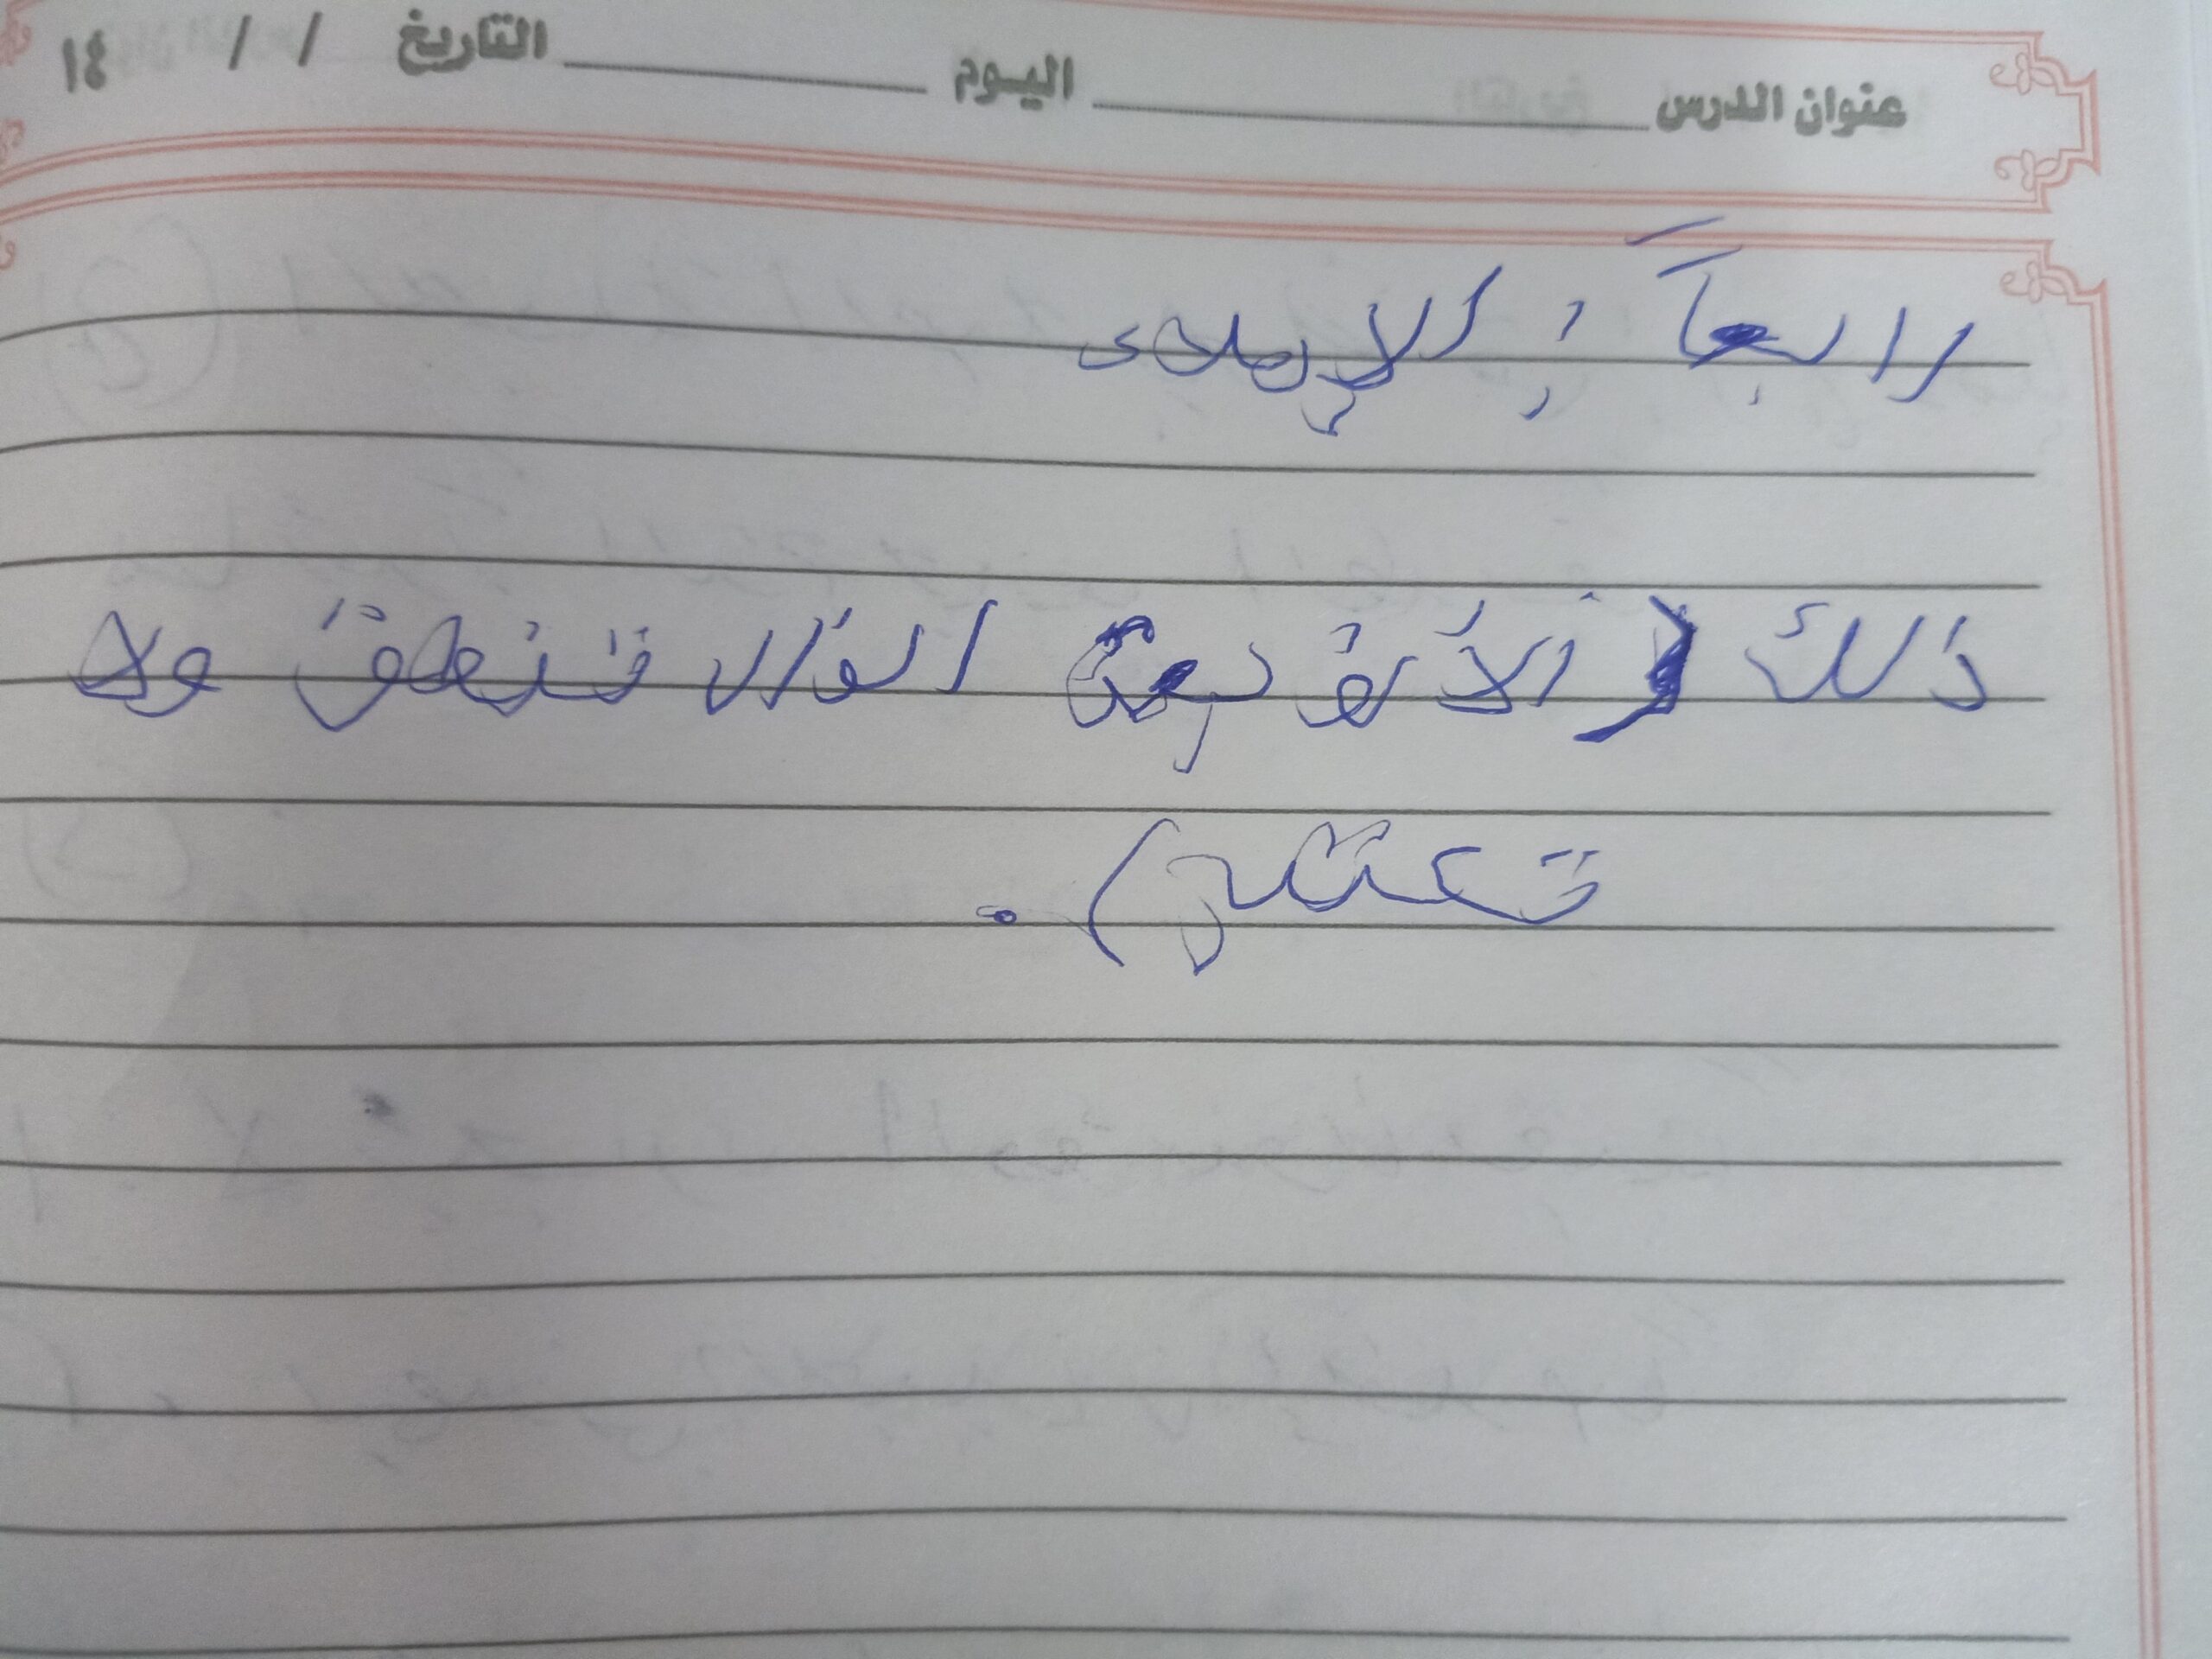 عنوان الدرس اليوم التاريخ / / ١٤
رابعاً : الإملاء
ذلك ( الألف بعد الذال تنطق ولا
تكتب ) .